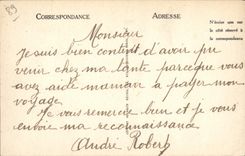 89
CORRESPONDANCE
ADRESSE
N'écrire que sur
le côté réservé à
la correspondance
Monsieur
Je suis bien content d'avoir pu
venir chez ma tante parceque vous
avez aidé maman à payer mon
voyage
Je vous remercie bien et je vous
envoie ma reconnaissance
André Robert